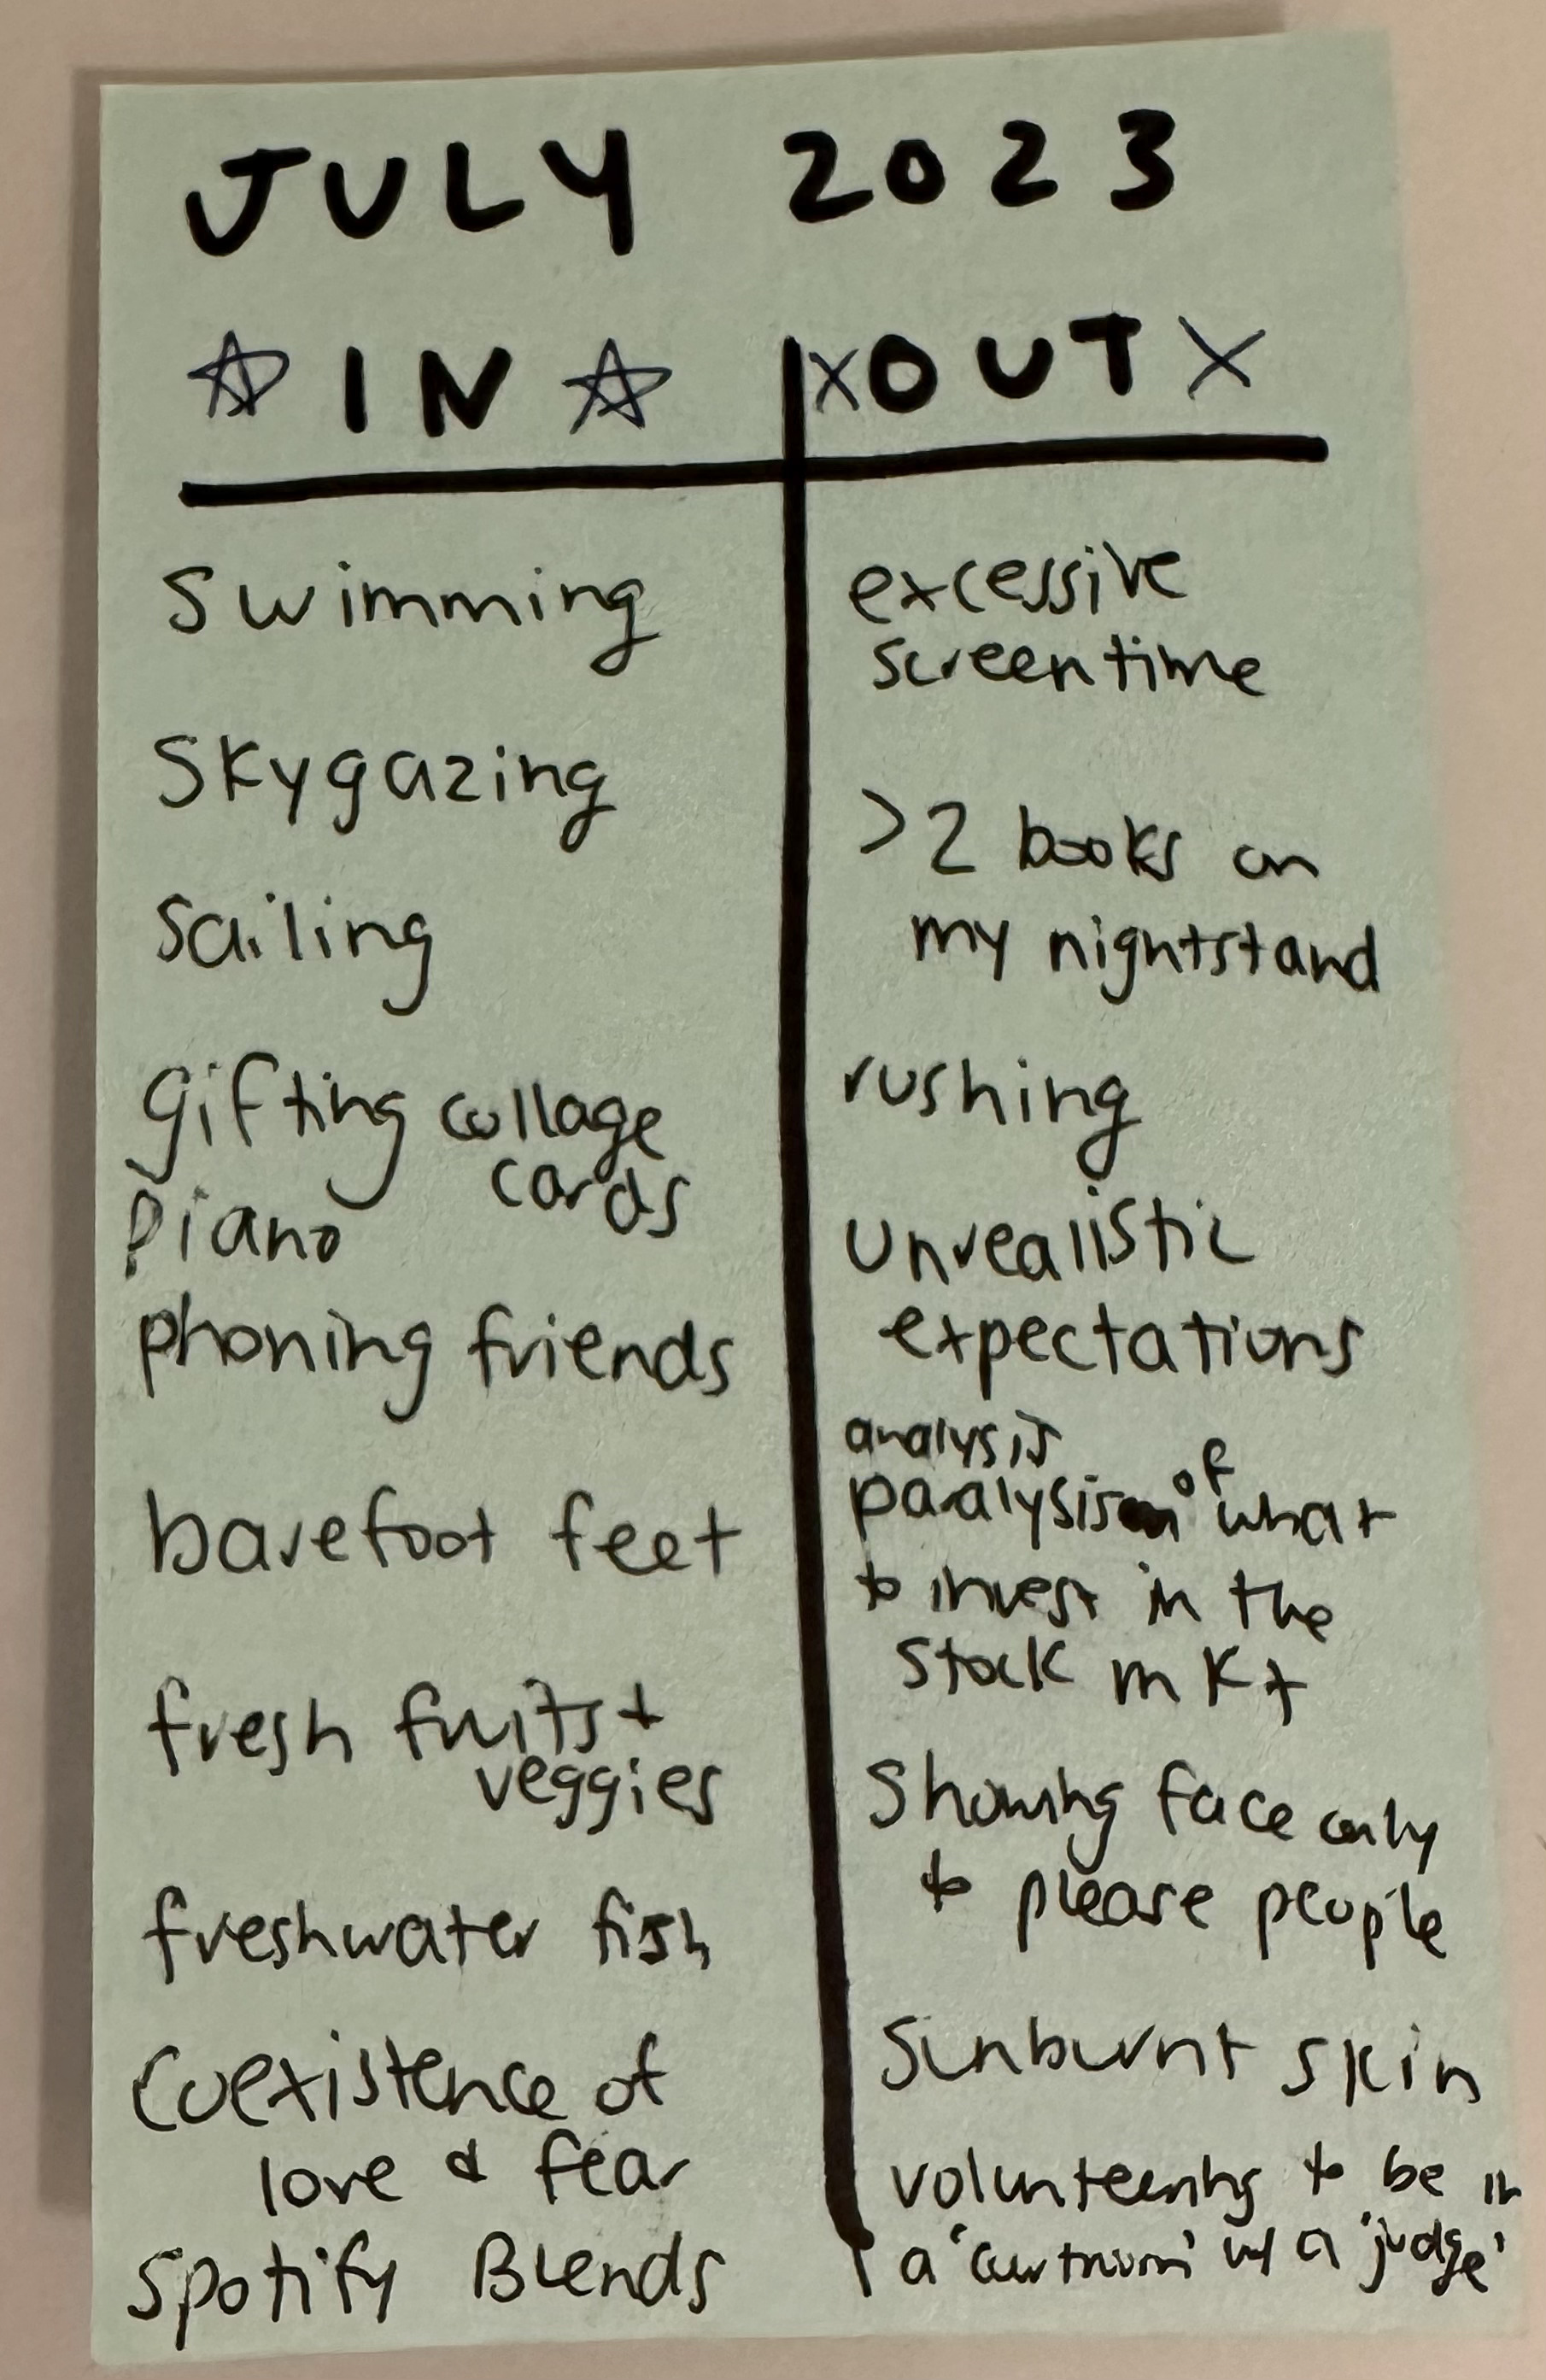 JULY 2023
IN
swimming
skygazing
sailing
gifting collage
cards
piano
phoning friends
barefoot feet
fresh fruits +
veggies
freshwater fish
coexistence of
love & fear
Spotify Blends
XOUTX
excessive
screentime
>2 books on
my nightstand
rushing
unrealistic
expectations
analysis
paralysis of what
to invest in the
stock mkt
showing face only
to please people
sunburnt skin
volunteering to be in
a 'courtroom' w/ a 'judge'